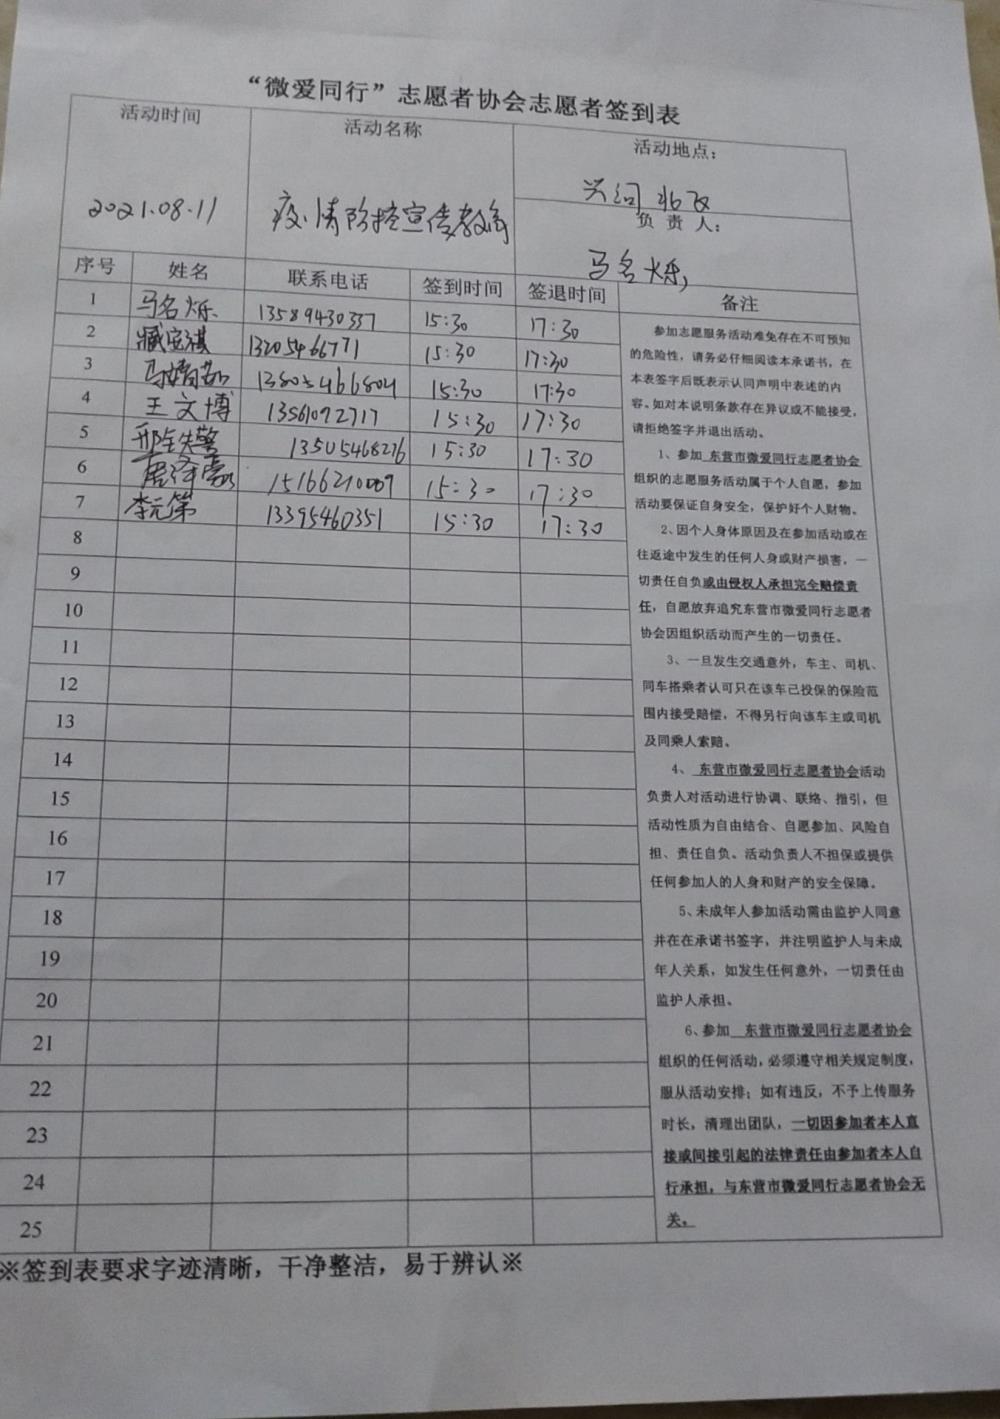 “微爱同行”志愿者协会志愿者签到表
活动时间 活动名称 活动地点：
2021.08.11 疫情防控宣传教育 兴河北区
负责人：
马名烁
序号 姓名 联系电话 签到时间 签退时间 备注
1 马名烁 13589430337 15:30 17:30
2 15:30 17:30
3 15:30 17:30
4 王文博 13561092717 15:30 17:30
5 13505468276 15:30 17:30
6 15:30 17:30
7 李元第 13395460351 15:30 17:30
8
9
10
11
12
13
14
15
16
17
18
19
20
21
22
23
24
25
参加志愿服务活动难免存在不可预知
的危险性，请务必仔细阅读本承诺书，在
本表签字后既表示认同声明中表述的内
容。如对本说明条款存在异议或不能接受，
请拒绝签字并退出活动。
1、参加 东营市微爱同行志愿者协会
组织的志愿服务活动属于个人自愿，参加
活动要保证自身安全，保护好个人财物。
2、因个人身体原因及在参加活动或在
往返途中发生的任何人身或财产损害，一
切责任自负或由侵权人承担完全赔偿责
任，自愿放弃追究东营市微爱同行志愿者
协会因组织活动而产生的一切责任。
3、一旦发生交通意外，车主、司机、
同车搭乘者认可只在该车已投保的保险范
围内接受赔偿，不得另行向该车主或司机
及同乘人索赔。
4、 东营市微爱同行志愿者协会活动
负责人对活动进行协调、联络、指引，但
活动性质为自由结合、自愿参加、风险自
担、责任自负。活动负责人不担保或提供
任何参加人的人身和财产的安全保障。
5、未成年人参加活动需由监护人同意
并在在承诺书签字，并注明监护人与未成
年人关系，如发生任何意外，一切责任由
监护人承担。
6、参加 东营市微爱同行志愿者协会
组织的任何活动，必须遵守相关规定制度，
服从活动安排；如有违反，不予上传服务
时长，清理出团队，一切因参加者本人直
接或间接引起的法律责任由参加者本人自
行承担，与东营市微爱同行志愿者协会无
关。
※签到表要求字迹清晰，干净整洁，易于辨认※